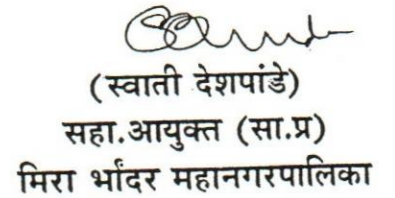 (स्वाती देशपांडे)
सहा.आयुक्त (सा.प्र)
मिरा भांदर महानगरपालिका